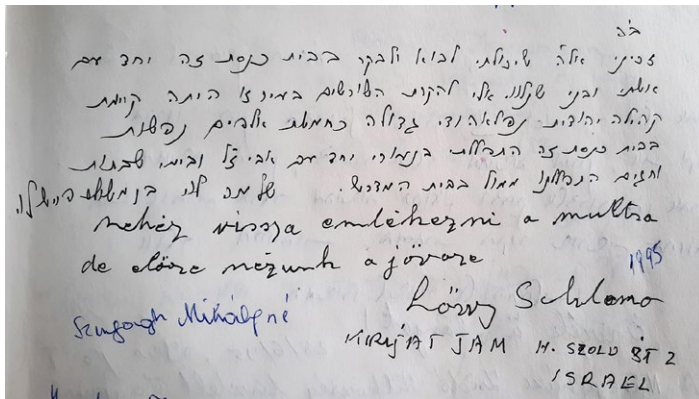 ב"ה
זכיתי אילה שיכולתי לבוא ולבקר בבית כנסת זה יחד עם
אשתי ובני שבאנו אלי להקות השורשים בעיר זו היתה קיימת
קהילה יהודית נפלאה וגדולה כחמשת אלפים נפשות
בבית כנסת זה התפללתי בנעורי יחד עם אבי ז"ל ובימי שבתות
וחגים התפללנו ממול בבית המדרש.
nehéz vissza emlékezni a multra
de előre nézunk a jövöre
1995
Lörvy Schlomo
Szungogh Mihályné
KIRJÁT JAM H. SZOLD ŠT 2
ISRAEL